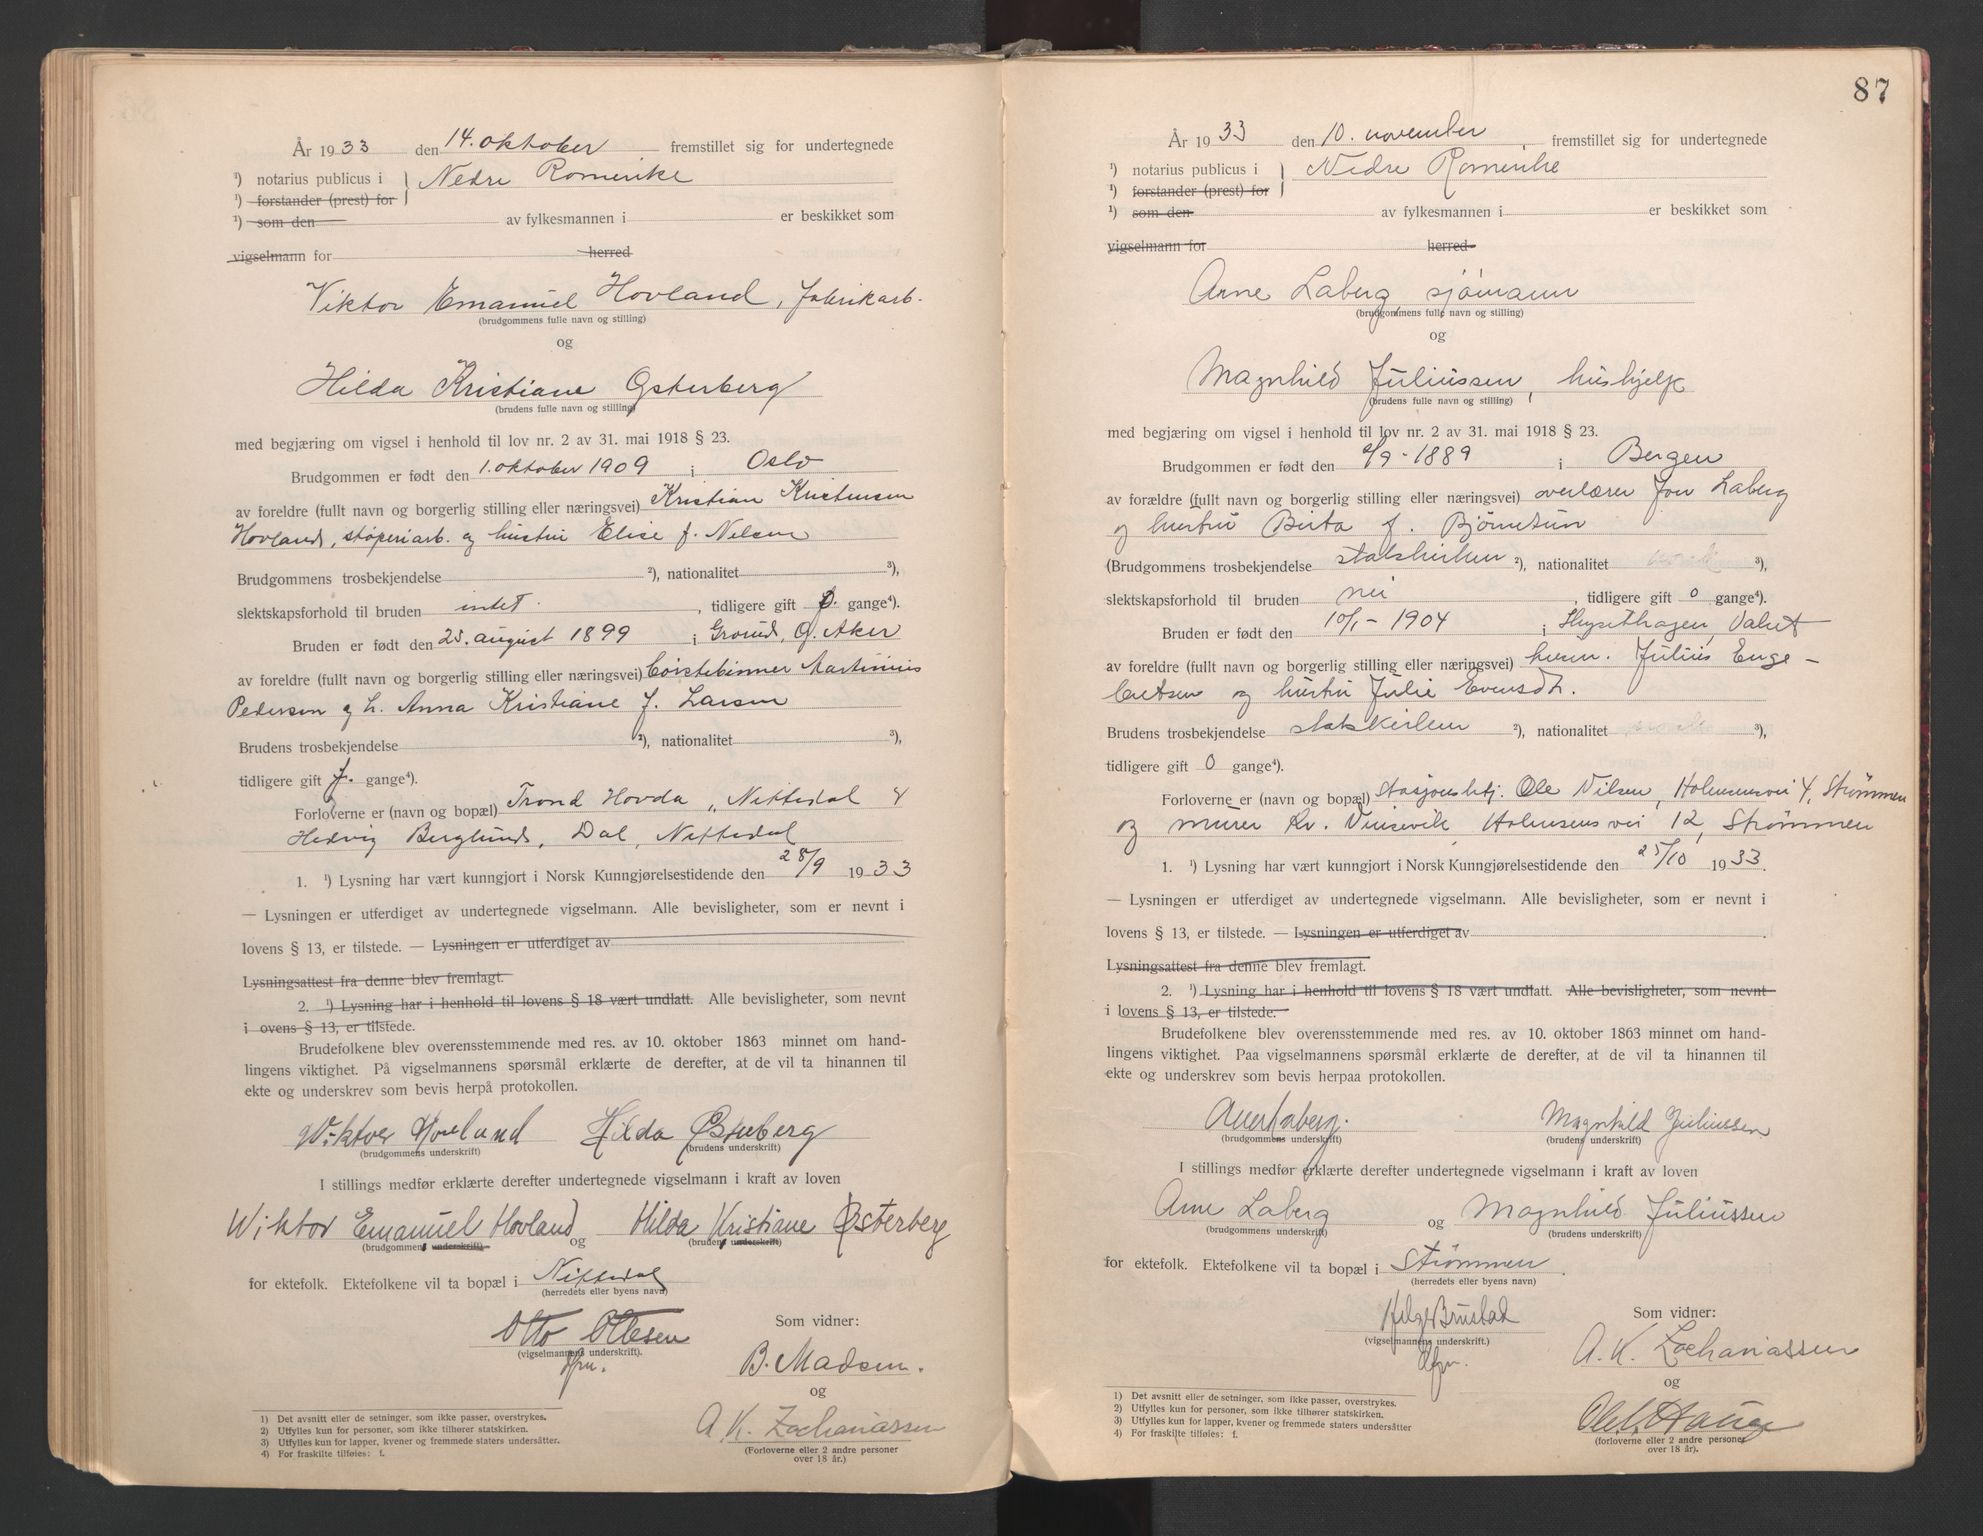 År 1933 den 14. oktober fremstillet sig for undertegnede
¹) notarius publicus i } Nedre Romerike
¹) forstander (prest) for
¹) som den av fylkesmannen i er beskikket som
vigselmann for herred
Viktor Emanuel Hovland, fabrikarb.
(brudgommens fulle navn og stilling)
og
Hilda Kristiane Østerberg
(brudens fulle navn og stilling)
med begjæring om vigsel i henhold til lov nr. 2 av 31. mai 1918 § 23.
Brudgommen er født den 1. oktober 1909 i Oslo
av foreldre (fullt navn og borgerlig stilling eller næringsvei) Kristian Kristensen
Hovland, støperiarb. og hustru Elise f. Nilsen
Brudgommens trosbekjendelse ²), nationalitet ³),
slektskapsforhold til bruden intet. , tidligere gift gange⁴).
Bruden er født den 25. august 1899 i Grorud, Ø. Aker
av foreldre (fullt navn og borgerlig stilling eller næringsvei) børstebinner Martinius
Pedersen og h. Anna Kristiane f. Larsen
Brudens trosbekjendelse ²), nationalitet ³),
tidligere gift gange⁴).
Forloverne er (navn og bopæl) Trond Hovda, Nittedal &
Hedvig Berglund, Dal, Nittedal
1. ¹) Lysning har vært kunngjort i Norsk Kunngjørelsestidende den 28/9 1933
— Lysningen er utferdiget av undertegnede vigselmann. Alle bevisligheter, som er nevnt i
lovens § 13, er tilstede. — Lysningen er utferdiget av
Lysningsattest fra denne blev fremlagt.
2. ¹) Lysning har i henhold til lovens § 18 vært undlatt. Alle bevisligheter, som nevnt
i ovens § 13, er tilstede.
Brudefolkene blev overensstemmende med res. av 10. oktober 1863 minnet om hand-
lingens viktighet. På vigselmannens spørsmål erklærte de derefter, at de vil ta hinannen til
ekte og underskrev som bevis herpå protokollen.
Wiktor Hovland Hilda Østerberg
(brudgommens underskrift) (brudens underskrift)
I stillings medfør erklærte derefter undertegnede vigselmann i kraft av loven
Wiktor Emanuel Hovland og Hilda Kristiane Østerberg
(brudgommens underskrift) (brudens underskrift)
for ektefolk. Ektefolkene vil ta bopæl i Nittedal
(herredets eller byens navn)
Otto Ottesen
(vigselmannens underskrift).
Som vidner:
B. Madsen.
og
A. K. Zachariassen
(Forloverne eller 2 andre personer
over 18 år.)
1) Det avsnitt eller de setninger, som ikke passer, overstrykes.
2) Utfylles kun for personer, som ikke tilhører statskirken.
3) Utfylles kun for lapper, kvener og fremmede staters undersåtter.
4) For fraskilte tilføies: f.
87
År 1933 den 10. november fremstillet sig for undertegnede
¹) notarius publicus i } Nedre Romerike
¹) forstander (prest) for
¹) som den av fylkesmannen i er beskikket som
vigselmann for herred
Arne Laberg, sjømann
(brudgommens fulle navn og stilling)
og
Magnhild Juliussen, hushjelp
(brudens fulle navn og stilling)
med begjæring om vigsel i henhold til lov nr. 2 av 31. mai 1918 § 23.
Brudgommen er født den /9-1889 i Bergen
av forældre (fullt navn og borgerlig stilling eller næringsvei) overlærer Jon Laberg
og hustru Birta f. Bjørnetun
(Brudgommens trosbekjendelse statskirken ²), nationalitet norsk ³),
slektskapsforhold til bruden nei , tidligere gift 0 gange⁴).
Bruden er født den 10/1-1904 i
av foreldre (fullt navn og borgerlig stilling eller næringsvei) Julius Enge-
bretsen og hustru Julie Evensdt.
Brudens trosbekjendelse statskirken ²), nationalitet norsk ³),
tidligere gift 0 gange⁴).
Forloverne er (navn og bopæl) stasjonsbetj. Ole Nilsen, Holmensvei 4, Strømmen
og murer Kr. Holmensvei 12, Strømmen
1. ¹) Lysning har vært kunngjort i Norsk Kunngjørelsestidende den 25/10 1933.
— Lysningen er utferdiget av undertegnede vigselmann. Alle bevisligheter, som er nevnt i
lovens § 13, er tilstede. — Lysningen er utferdiget av
Lysningsattest fra denne blev fremlagt.
2. ¹) Lysning har i henhold til lovens § 18 vært undlatt. Alle bevisligheter, som nevnt
i lovens § 13, er tilstede.
Brudefolkene blev overensstemmende med res. av 10. oktober 1863 minnet om hand-
lingens viktighet. Paa vigselmannens spørsmål erklærte de derefter, at de vil ta hinannen til
ekte og underskrev som bevis herpaa protokollen.
Arne Laberg. Magnhild Juliussen
(brudgommens underskrift) (brudens underskrift)
I stillings medfør erklærte derefter undertegnede vigselmann i kraft av loven
Arne Laberg og Magnhild Juliussen
(brudgommens underskrift) (brudens underskrift)
for ektefolk. Ektefolkene vil ta bopæl i Strømmen
(herredets eller byens navn)
Helge Brustad
(vigselmannens underskrift.)
Som vidner:
A. K. Zachariassen
og
(forloverne eller 2 andre personer
over 18 år).
1) Det avsnitt eller de setninger, som ikke passer, overstrykes.
2) Utfylles kun for personer, som ikke tilhører statskirken.
3) Utfylles kun for lapper, kvener og fremmede staters undersåtter
4) For fraskilte tilføies: f.